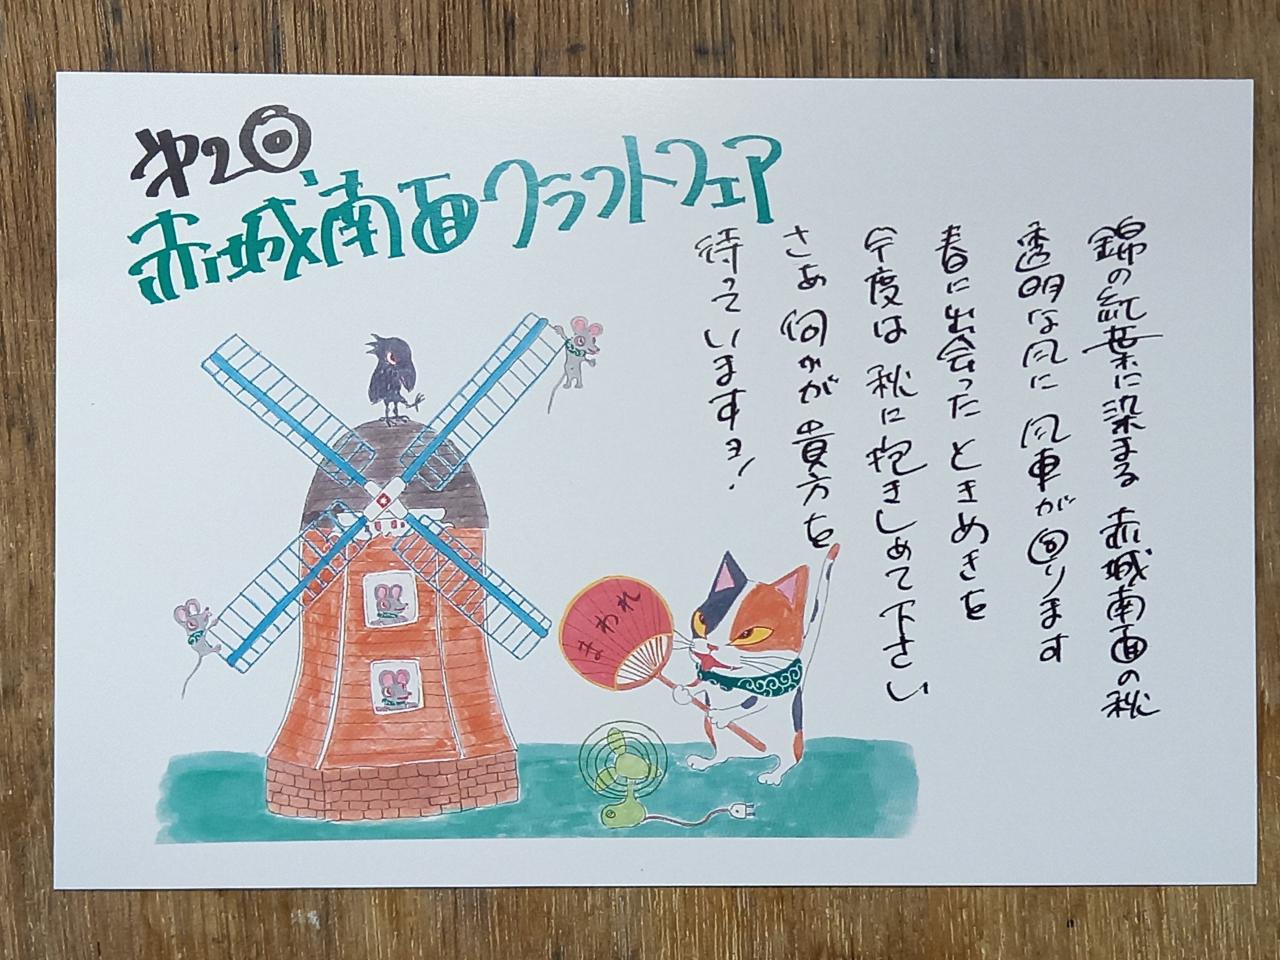 第2回
赤城南面クラフトフェア
錦の紅葉に染まる 赤城南面の秋
透明な風に 風車が回ります
春に出会った ときめきを
今度は 秋に抱きしめて下さい
さあ 何かが貴方を
待っていますヨ!
まわれ